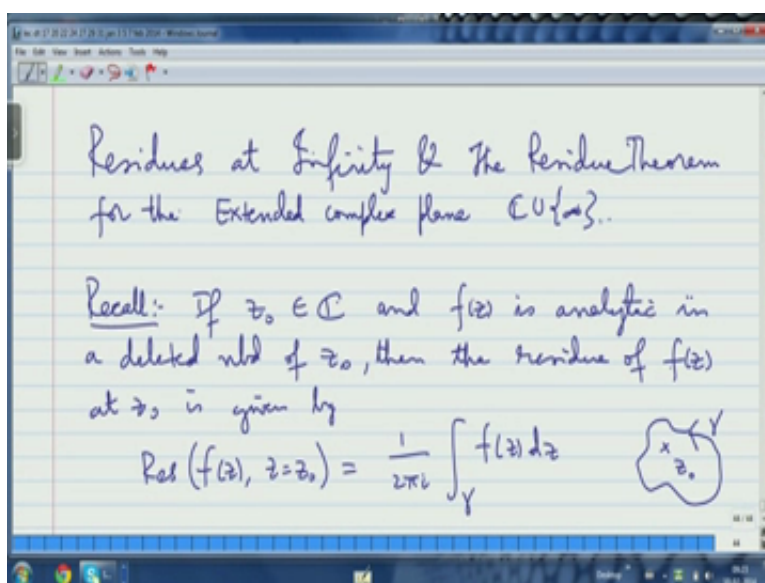 File Edit View Insert Actions Tools Help
Residues at Infinity & The Residue Theorem
for the Extended complex plane ℂ∪{∞}..
Recall:- If z₀ ∈ ℂ and f(z) is analytic in
a deleted nbd of z₀, then the residue of f(z)
at z₀ is given by
Res (f(z), z=z₀) = 1/2πi ∫γ f(z) dz
γ
x
z₀